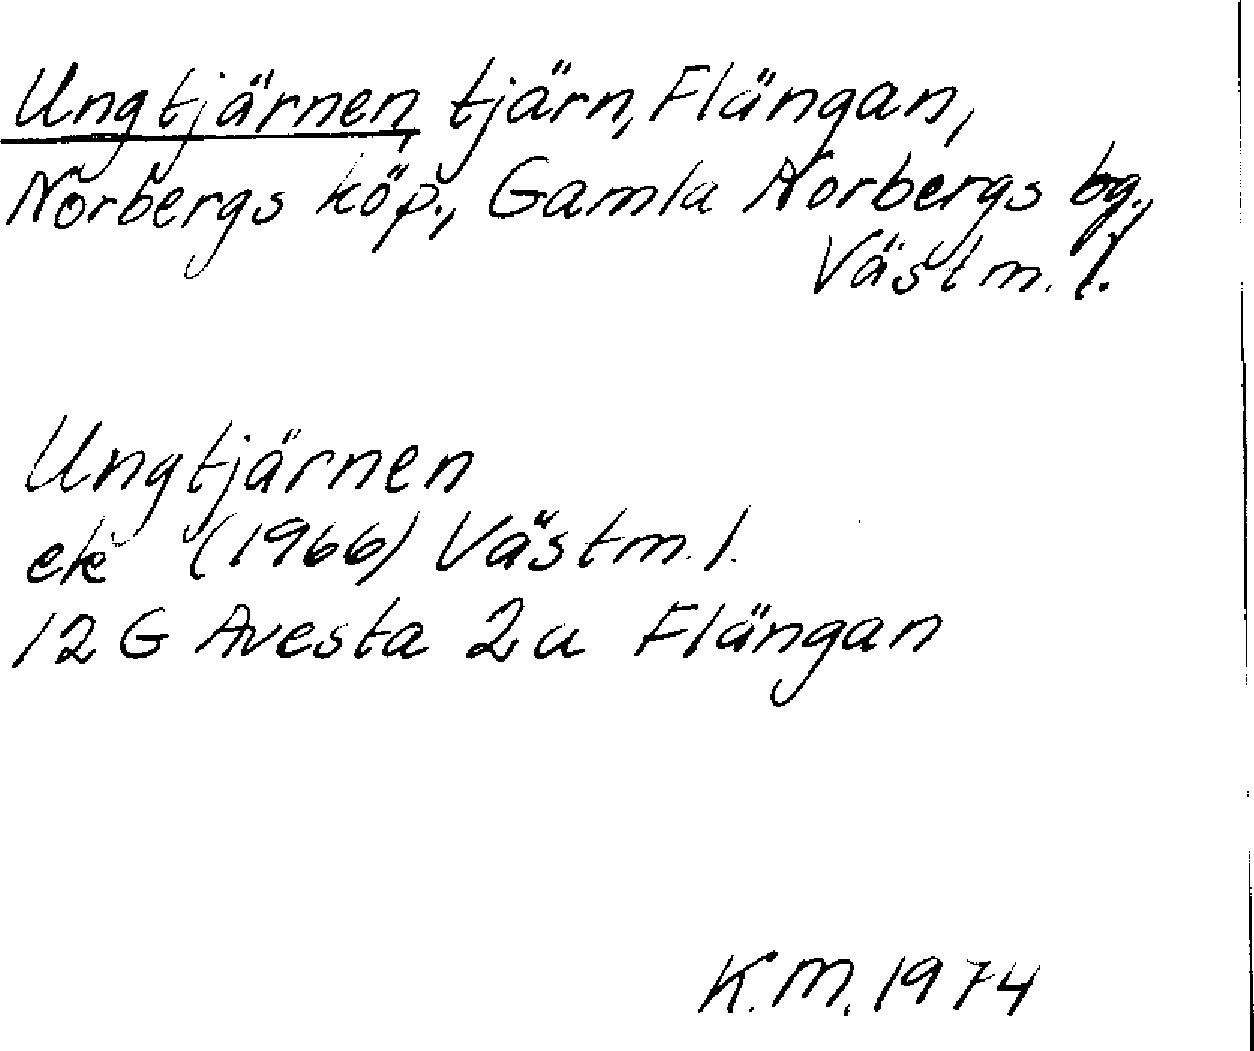 Ungtjärnen, tjärn, Flängan,
Norbergs köp., Gamla Norbergs bg.,
Västm. l.
Ungtjärnen
ek (1966) Västm. l.
12 G Avesta 2u Flängan
K.M. 1974